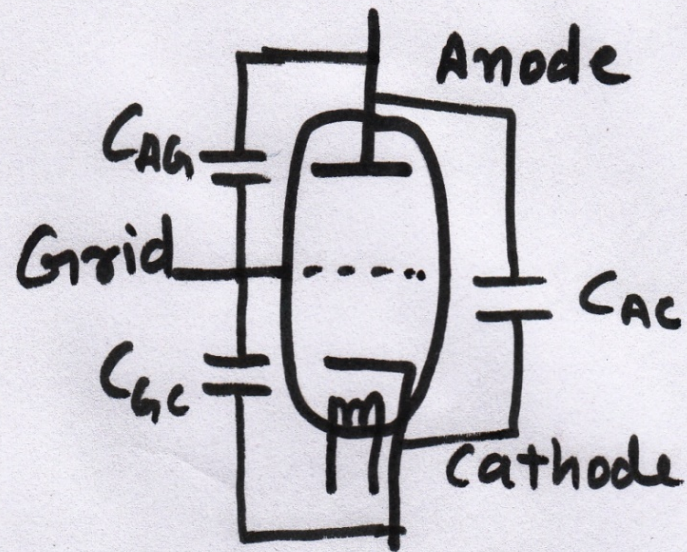 Anode
C_AG
Grid
C_AC
C_GC
Cathode